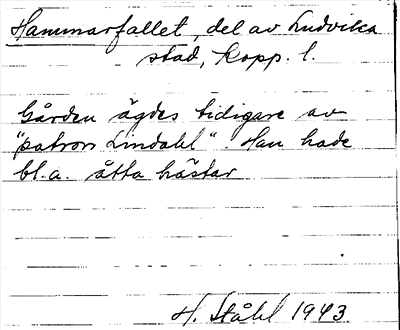 Hammarfallet, del av Ludvika
stad, Kopp. l.
Gården ägdes tidigare av
"patron Lindahl". Han hade
bl.a. åtta hästar
H. Ståhl 1943.